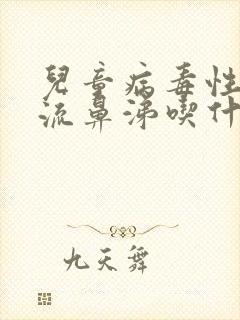 兒童病毒性
流鼻涕喫什
九天舞